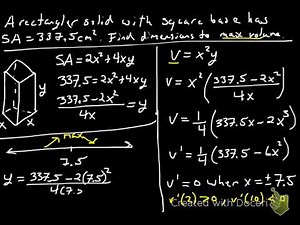 A rectangular solid with square base has
SA = 337.5cm². Find dimensions to max volume.
SA = 2x² + 4xy
337.5 = 2x² + 4xy
(337.5 - 2x²)/4x = y
y
x
x
max
7.5
y = (337.5 - 2(7.5)²)/4(7.5
V = x²y
V = x²((337.5 - 2x²)/4x)
V = 1/4(337.5x - 2x³)
V' = 1/4(337.5 - 6x²)
V' = 0 when x = ± 7.5
V'(2) > 0, V'(10) < 0
Created with Doceri